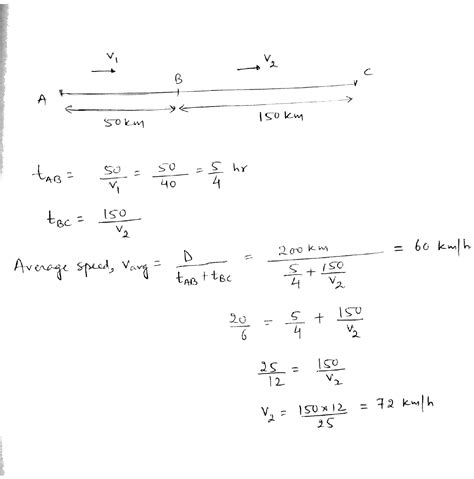 V₁ V₂
A B C
50 km 150 km
t_AB = 50/V₁ = 50/40 = 5/4 hr
t_BC = 150/V₂
Average speed, Vavg = D/(t_AB + t_BC) = 200 km/(5/4 + 150/V₂) = 60 km/h
20/6 = 5/4 + 150/V₂
25/12 = 150/V₂
V₂ = 150×12/25 = 72 km/h